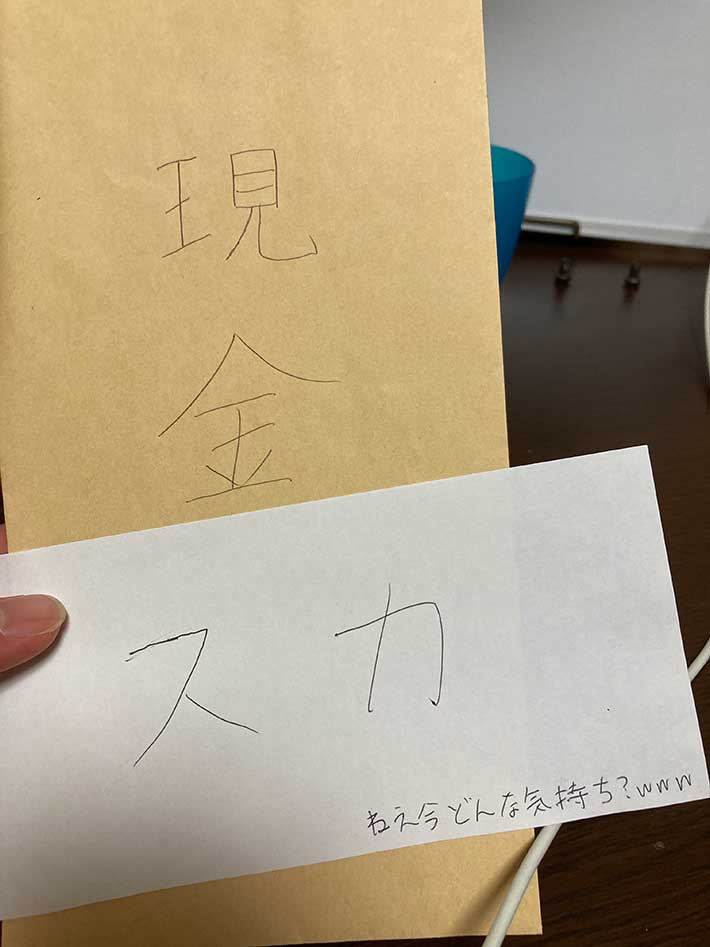 現金
スカ
ねえ今どんな気持ち?www